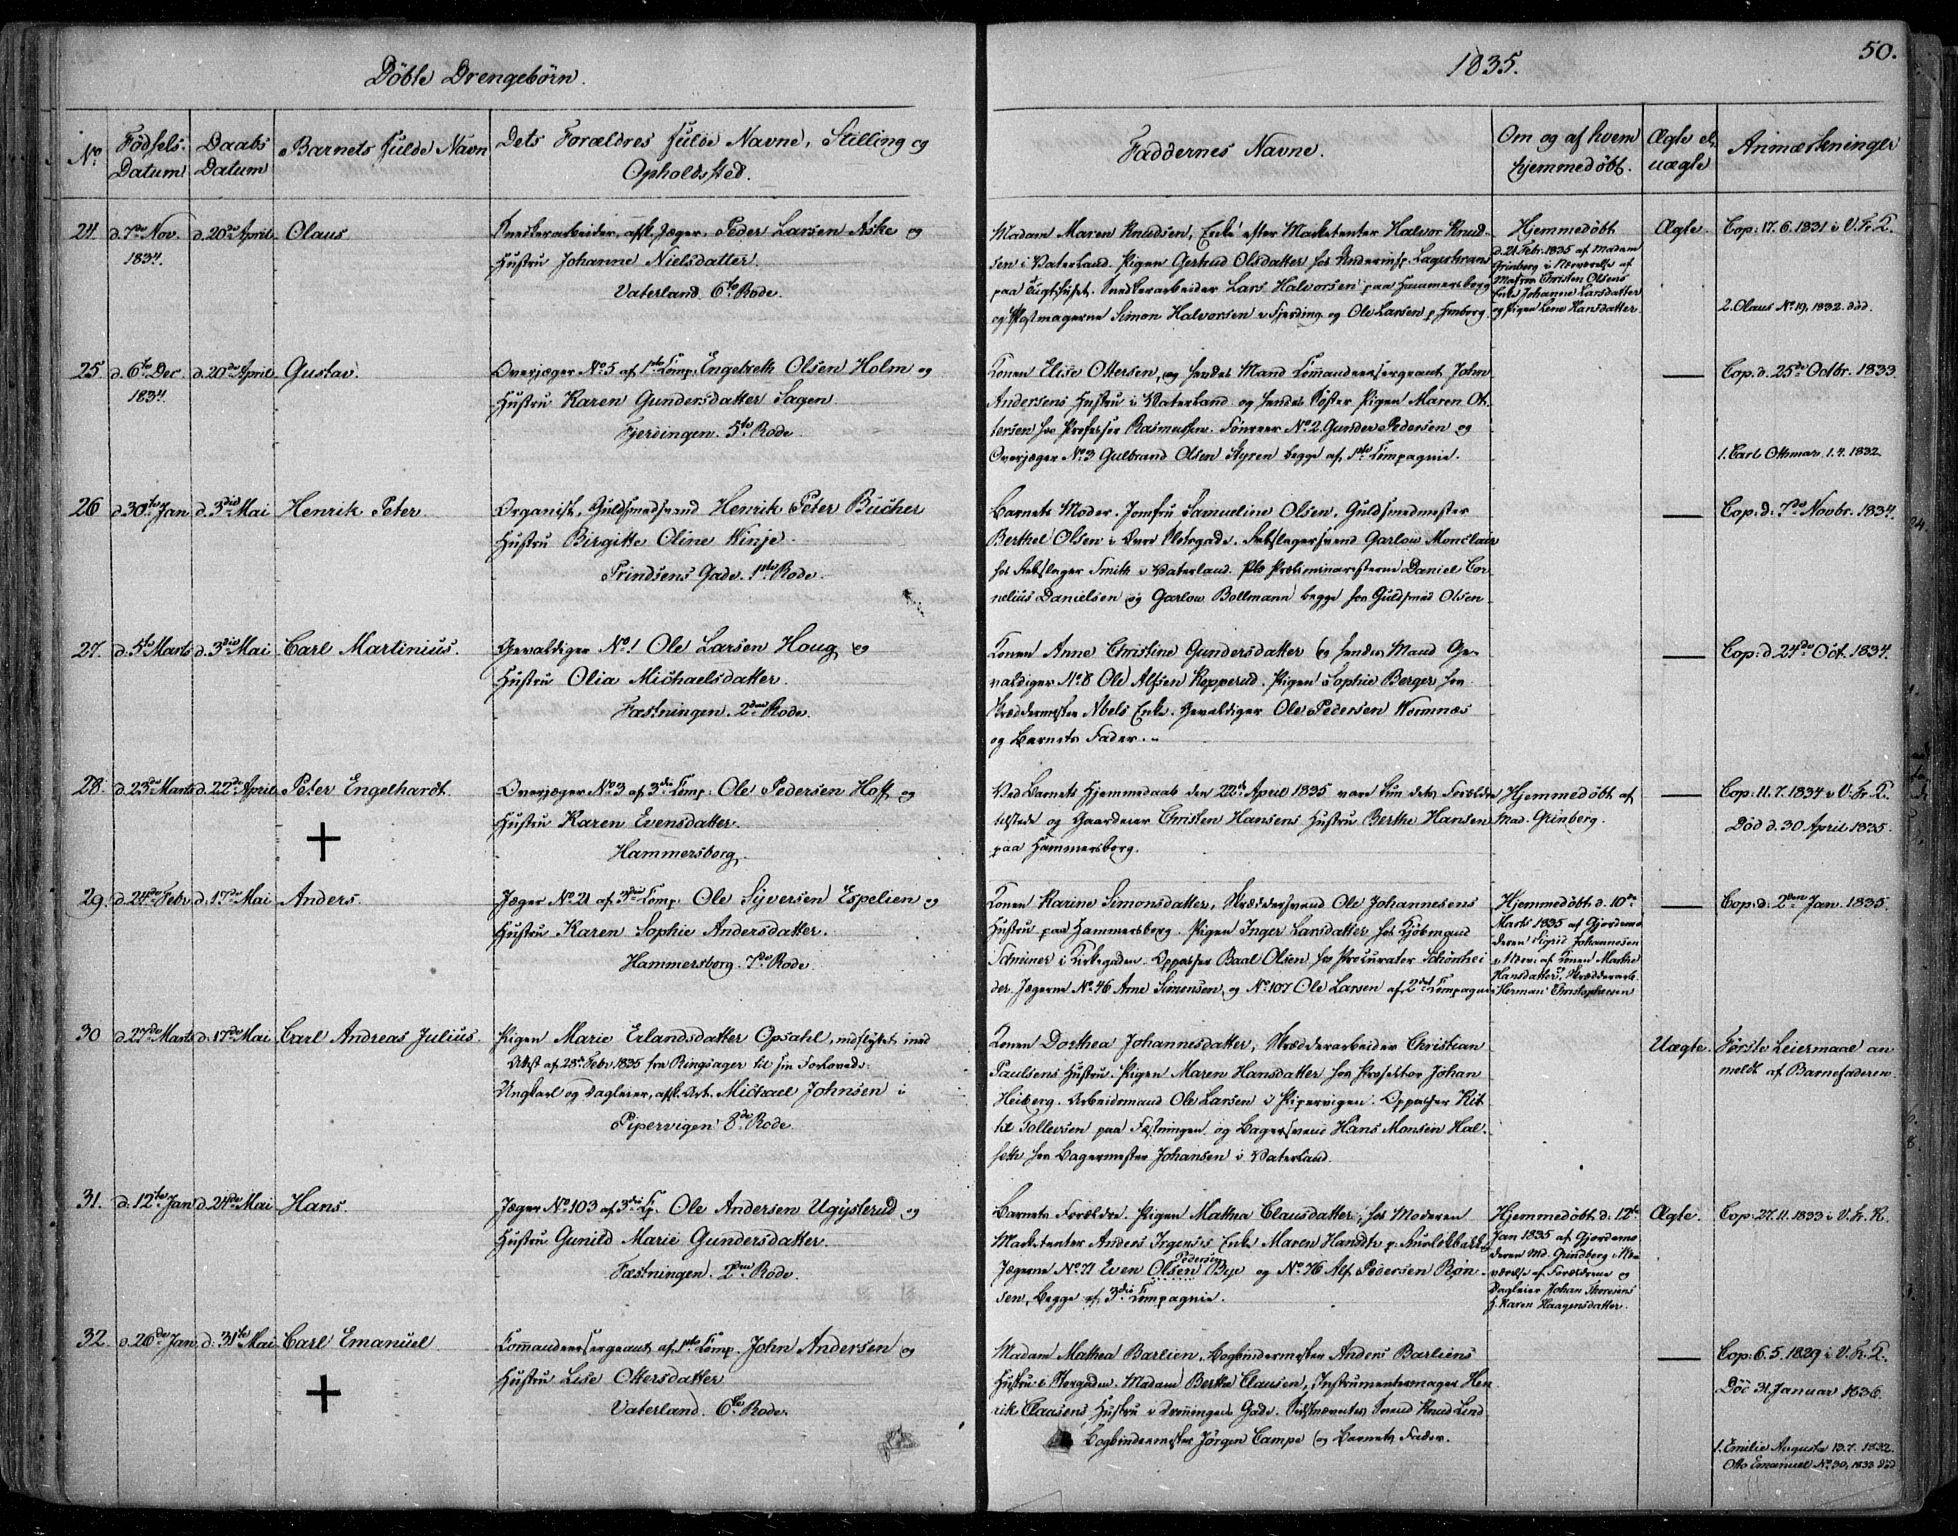 50.
Döbte Drengebörn.
1835.
No.
Födsels- Datum
Daabs Datum
Barnets fulde Navn
Dets Forældres fulde Navne, Stilling og Opholdssted.
Faddernes Navne.
Om og af hvem hjemmedöbt.
Ægte el. uægte
Anmærkninger
24. d. 7de Nov. 1834. d. 20de April Olaus
Snedkerarbeider, afsk. Jæger, Peder Larsen Aske og
Hustru Johanne Nielsdatter.
Vaterland. 6te Rode.
Madam Maren Knudsen, Enke efter Marketenter Halvor Knud-
sen i Vaterland. Pigen Gertrud Olsdatter hos Underinsp. Lagerkrans
paa Tugthuset. Snedkerarbeider Lars Halvorsen paa Hammersborg
og Simon Halvorsen i Fjerding. og Ole Larsen p. Hmborg.
Hjemmedöbt
d. 21 Febr. 1835 af Madam
Grinberg i Nærværelse af
Christen Olsens
Enke Johanne Larsdatter
og Pigen Lene Hansdatter
Ægte.
Cop. 17.6.1831 i V. Fr. K.
2. Olaus No. 19, 1832. död.
25. d. 6te Dec. 1834. d. 20de April Gustav.
Overjæger No. 5 af 1ste Comp. Engebreth Olsen Holm og
Hustru Karen Gundersdatter Sagen
Fjerdingen. 5te Rode.
Konen Elise Ottersen, og hendes Mand Commandeersergeant John
Andersens Hustru i Vaterland og hendes Söster Pigen Maren Ot-
tersen hos Professor Rasmussen. No. 2. Gunder Pedersen og
Overjæger No. 3 Gulbrand Olsen Styren begge af 1ste Compagnie.
—
Cop. d. 25de Octbr. 1833.
1. Carl Othmar, 1.4.1832.
26 d. 30te Jan d. 3die Mai Henrik Peter
Organist, Guldsmedsvend Henrik Peter Bücher
Hustru Birgitte Oline Winje.
Prindsens Gade. 1ste Rode.
Barnets Moder. Jomfru Samueline Olsen. Guldsmedmester
Berthel Olsen i Övre Slotsgade. Garlow Monclair
hos Smith i Vaterland. Præliminaristerne Daniel Cor-
nelius Danielsen og Garlow Bollmann begge hos Guldsmed Olsen.
—
Cop. d. 7de Novbr. 1834.
27. d. 5te Marts d. 3die Mai Carl Martinius.
Gevaldiger No. 1 Ole Larsen Houg og
Hustru Olia Michaelsdatter.
Fæstningen. 2den Rode.
Konen Anne Christine Gundersdatter og hendes Mand Ge-
valdiger No. 8 Ole Alfsen Kopperud. Pigen Sophie Berger hos
Skreddermester Abels Enke. Gevaldiger Ole Pedersen Wormnæs
og Barnets Fader.
—
Cop. d. 24de Oct. 1834.
28. d. 23de Marts d. 22de April Peter Engelhardt.
+
Overjæger No. 3 af 3die Comp. Ole Pedersen Hoff og
Hustru Karen Evensdatter.
Hammersborg.
Ved Barnets Hjemmedaab den 22de April 1835 vare kun dets Forældre
tilstede og Gaardeier Christen Hansens Hustru Berthe Hansen
paa Hammersborg.
Hjemmedöbt af
Mad. Grinberg.
—
Cop. 11.7.1834 i V. Fr. K.
Död d. 30 April 1835.
29. d. 24de Febr. d. 17de Mai Anders.
Jæger No. 21 af 3die Comp. Ole Syversen Espelien og
Hustru Karen Sophie Andersdatter.
Hammersborg. 7de Rode.
Konen Karine Simonsdatter, Skreddersvend Ole Johannesens
Hustru paa Hammersborg. Pigen Inger Larsdatter hos Kjöbmand
Schriner i Kirkegaden. Oppasser Baal Olsen hos Procurator Schönhei-
der. Jægerne No. 46 Arne Simensen, og No. 107 Ole Larsen af 2det Compagnie
Hjemmedöbt d. 10de
Marts 1835 af Gjordemo-
deren Sigrid Johannesen
Nær. af Konen Marthe
Hansdatter, Skrædderarb.
Herman Christophersen
—
Cop. d. 2den Jan. 1835.
30 d. 27de Marts d. 17de Mai Carl Andreas Julius.
Pigen Marie Erlandsdatter Opsahl, indflyttet med
Attest af 28de Febr. 1835 fra Ringsager til sin Forlovede:
Ungkarl og Dagleier, afsk. Art. Michael Johnsen i
Pipervigen 8de Rode.
Konen Dorthea Johannesdatter, Skrædderarbeider Christian
Paulsens Hustru. Pigen Maren Hansdatter hos Prosektor Johan
Heiberg. Arbeidsmand Ole Larsen i Pipervigen. Oppasser Kit-
til Tollevsen paa Fæstningen og Bagersvend Hans Monsen Hal-
seth hos Bagermester Johansen i Vaterland.
Uægte.
Förste Leiermaal an-
meldt af Barnefaderen.
31. d. 12te Jan d. 24de Mai Hans.
Jæger No. 103 af 3die Cp. Ole Andersen Ugysterud og
Hustru Gunild Marie Gundersdatter.
Fæstningen. 2den Rode.
Barnets Forældre. Pigen Mathea Clausdatter, hos Moderen
Marketenter Anders Irgens's Enke Maren Hansdtr
Jægerne No. 71 Even Olsen Pedersen Bye og No. 76 Alf Pedersen Rön-
sen, begge af 3die Compagnie.
Hjemmedöbt d. 12te
Jan 1835 af Gjordemo-
deren Md. Grindberg i Næ-
værelse af Forældrene og
Dagleier Johan Thoresens
H. Karen Haagensdatter.
Ægte.
Cop. 27.11.1833 i V. Fr. K.
32. d. 26de Jan d. 31te Mai Carl Emanuel.
+
Commandeersergeant af 1ste Comp. John Andersen og
Hustru Lise Ottersdatter
Vaterland. 6te Rode.
Madam Mathea Barlien, Bogbindermester Anders Barliens
Hustru i Storgaden. Madam Berthe Clausen, Instrumentmager Hen-
rik Clausens Hustru i Dronningens Gade. Sidstnævntes Svend Knud Lind
Bogbindermester Jörgen Campe og Barnets Fader.
—
Cop. 6.5.1829 i V. Fr. K.
Död 31 Januar 1836.
1. Emilie Augusta 13.7.1832.
Otto Emanuel No. 30, 1833 död